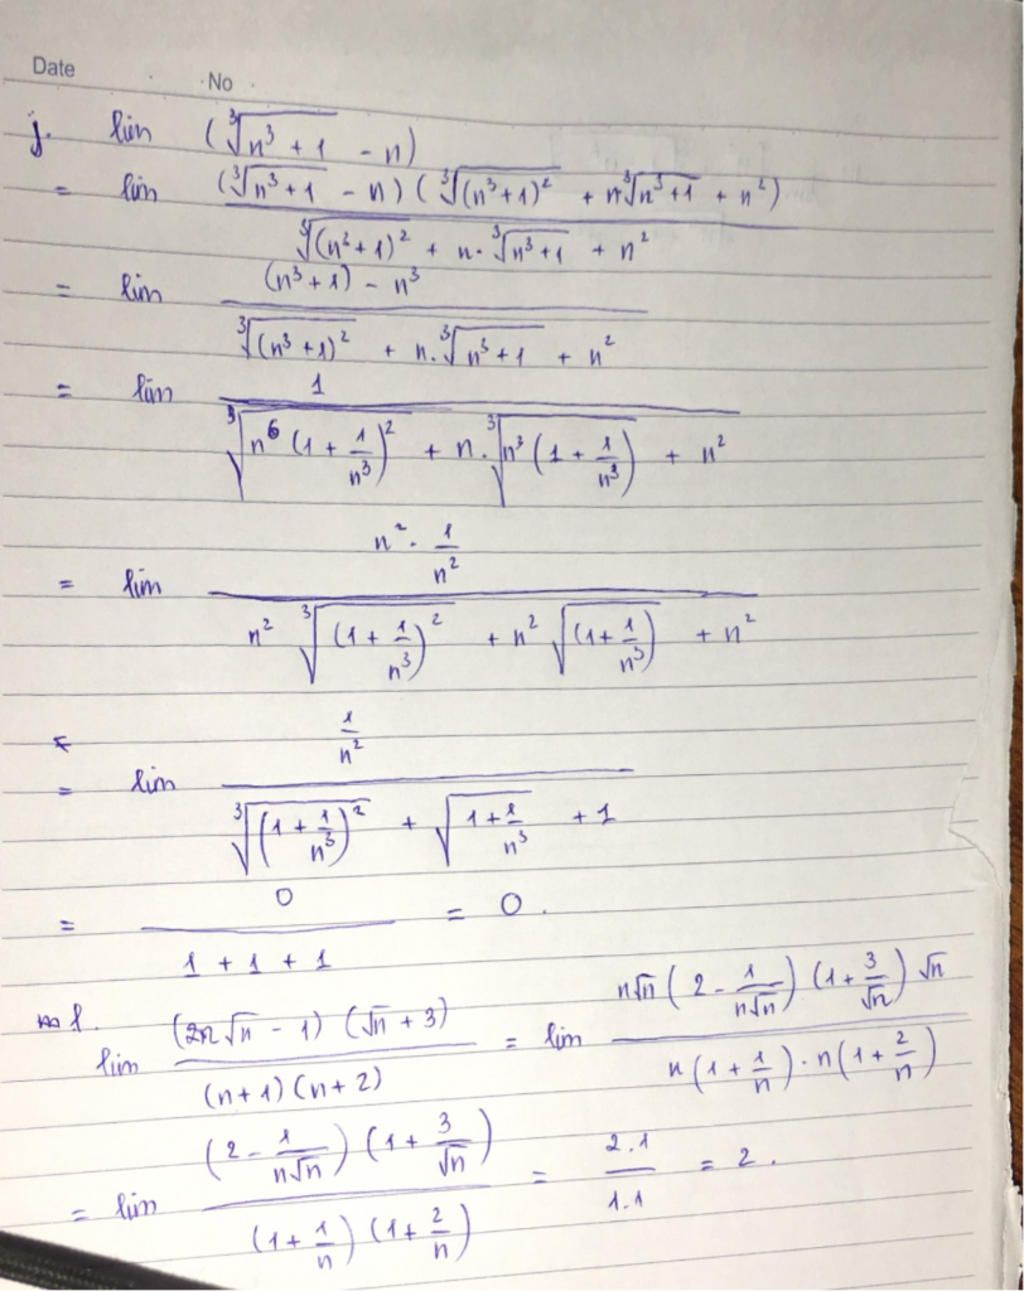 Date No
j. lim (∛(n³ + 1) - n)
= lim (∛(n³ + 1) - n) (∛((n³ + 1)²) + n∛(n³ + 1) + n²)
∛((n² + 1)²) + n. ∛(n³ + 1) + n²
= lim (n³ + 1) - n³
∛((n³ + 1)²) + n. ∛(n³ + 1) + n²
= lim 1
∛(n⁶ (1 + 1/n³)²) + n. ∛(n³ (1 + 1/n³)) + n²
= lim n² . 1/n²
n² ∛((1 + 1/n³)²) + n² √((1 + 1/n³)) + n²
= lim 1/n²
∛((1 + 1/n³)²) + √(1 + 1/n³) + 1
= 0 = 0.
1 + 1 + 1
l. lim (2n√n - 1) (√n + 3) = lim n√n (2 - 1/(n√n)) (1 + 3/√n) √n
(n + 1) (n + 2) n (1 + 1/n) . n (1 + 2/n)
= lim (2 - 1/(n√n)) (1 + 3/√n) = 2.1 = 2.
(1 + 1/n) (1 + 2/n) 1.1